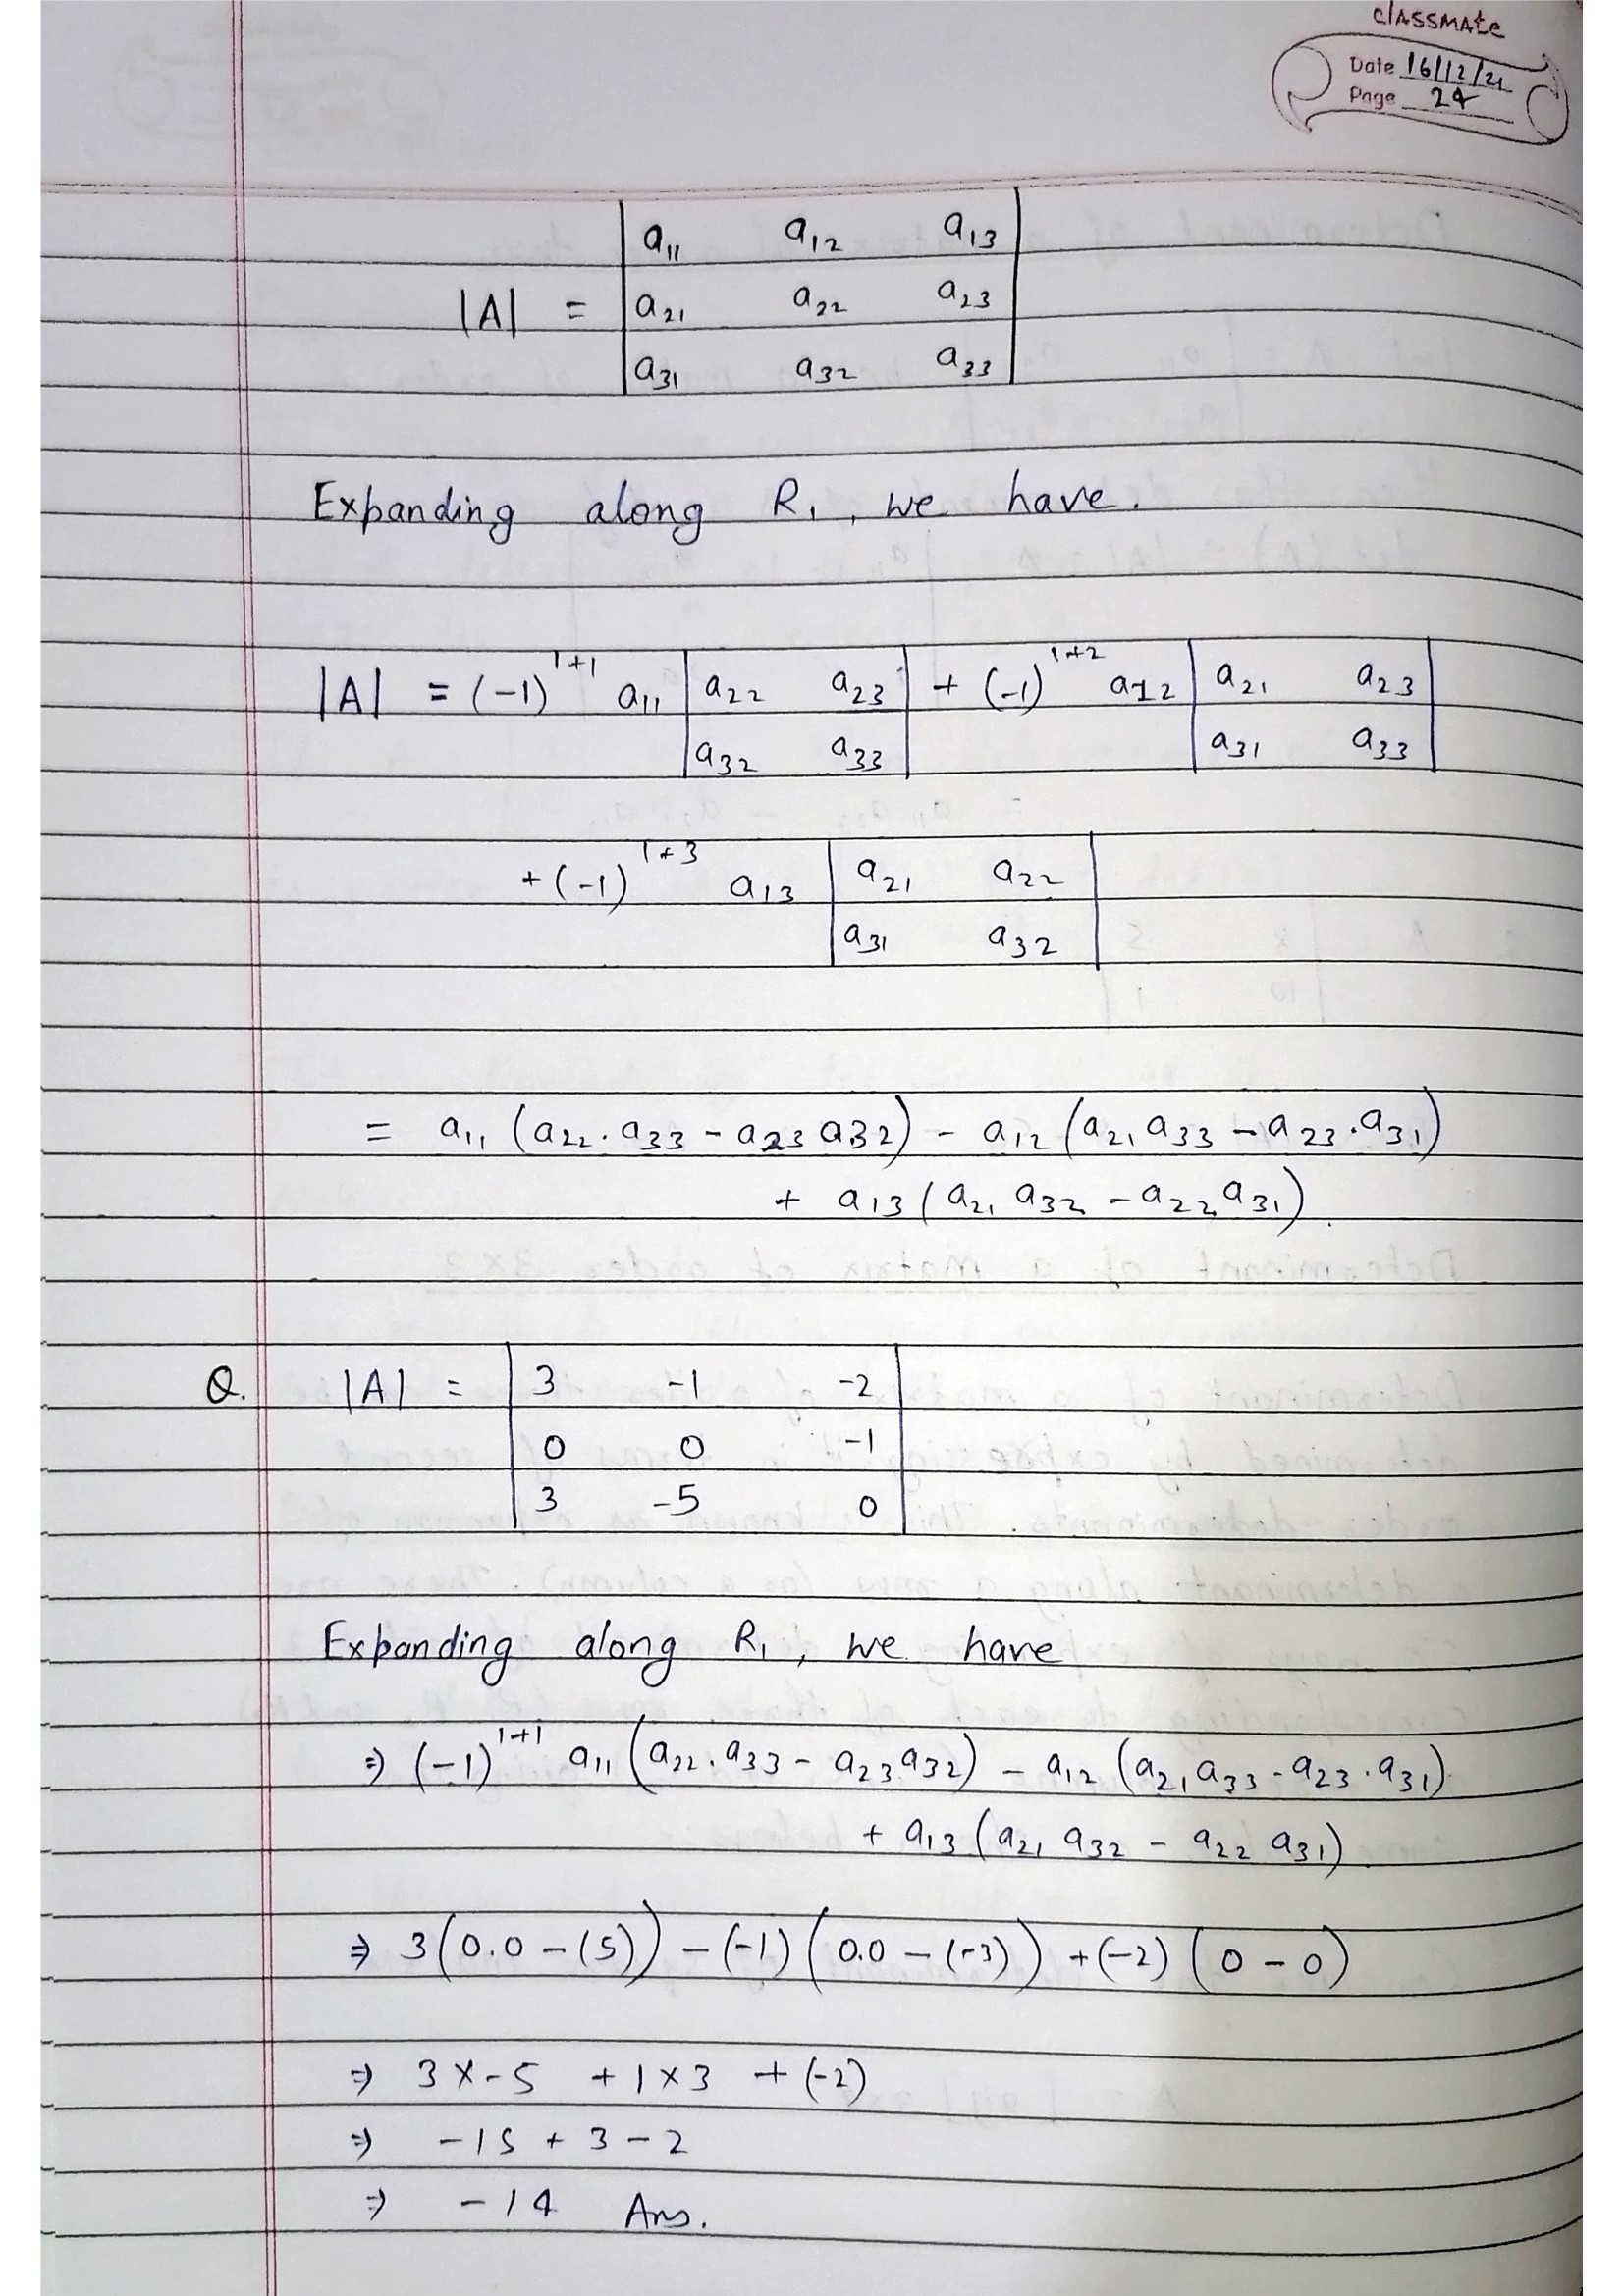 classmate
Date 16/12/21
Page 24
|A| = | a11 a12 a13 |
| a21 a22 a23 |
| a31 a32 a33 |
Expanding along R1, we have.
|A| = (-1)^1+1 a11 | a22 a23 | + (-1)^1+2 a12 | a21 a23 |
| a32 a33 | | a31 a33 |
+ (-1)^1+3 a13 | a21 a22 |
| a31 a32 |
= a11 (a22 . a33 - a23 a32) - a12 (a21 a33 - a23 . a31)
+ a13 (a21 a32 - a22 a31).
Q. |A| = | 3 -1 -2 |
| 0 0 -1 |
| 3 -5 0 |
Expanding along R1, we have
⇒ (-1)^1+1 a11 (a22 . a33 - a23 a32) - a12 (a21 a33 - a23 . a31)
+ a13 (a21 a32 - a22 a31)
⇒ 3 (0.0 - (5)) - (-1) (0.0 - (-3)) + (-2) (0 - 0)
⇒ 3 x -5 + 1 x 3 + (-2)
⇒ -15 + 3 - 2
⇒ -14 Ans.